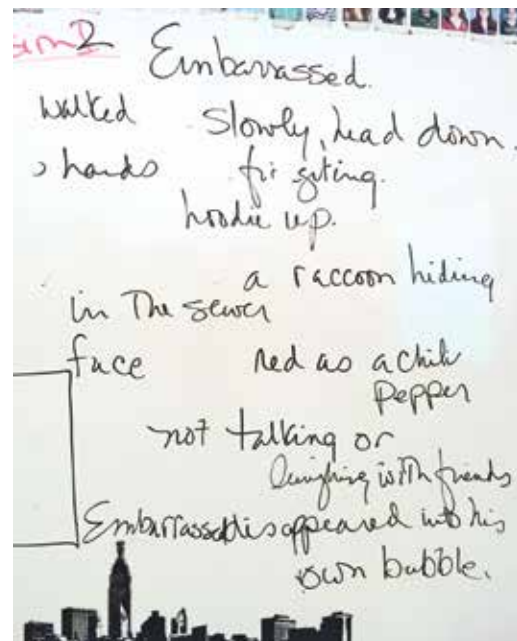 2 Embarrassed.
walked slowly, head down.
hands figiting.
hoodie up.
a raccoon hiding
in The sewer
face red as a chili
pepper
not talking or
laughing with friends
Embarrassed disappeared into his
own bubble.